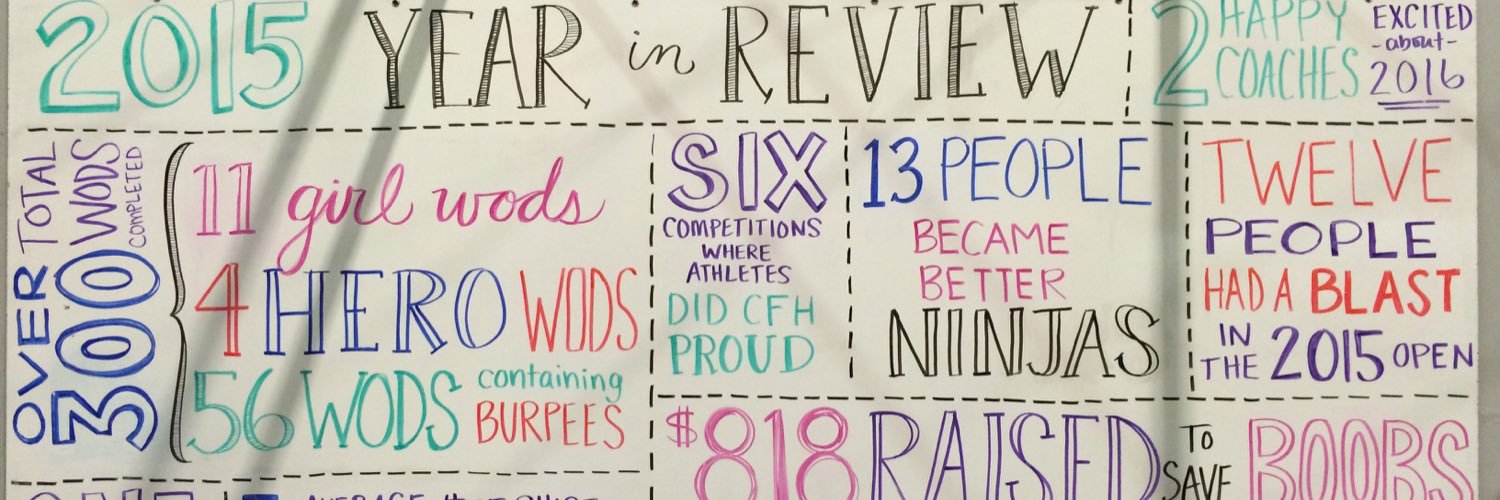 2015 YEAR in REVIEW
2 HAPPY COACHES
EXCITED
-about-
2016
OVER TOTAL
300 WODS
COMPLETED
11 girl wods
4 HERO WODS
56 WODS containing
BURPEES
SIX
COMPETITIONS
WHERE
ATHLETES
DID CFH
PROUD
13 PEOPLE
BECAME
BETTER
NINJAS
TWELVE
PEOPLE
HAD A BLAST
IN
THE 2015 OPEN
$818 RAISED TO SAVE BOOBS